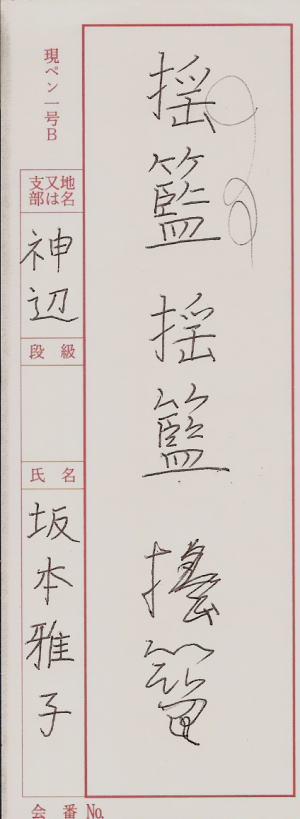 揺籃揺籃搖籃
現ペン一号B
地名又は支部
神辺
段級
氏名
坂本雅子
会番No.